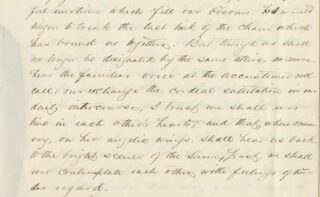 ful emotions which fill our bosoms.
to break the last link of the chain which
has bound us together. But though we shall
no longer be designated by the same titles, no more
hear the familiar voice at the accustomed roll
call, nor exchange the cordial salutation in our
daily intercourse, I trust we shall ever
live in each other's hearts, and that, when mem
ory, on her angelic wings, shall bear us back
to the bright scenes of the sunny past, we shall
ever contemplate each other with feelings of ten
der regard.